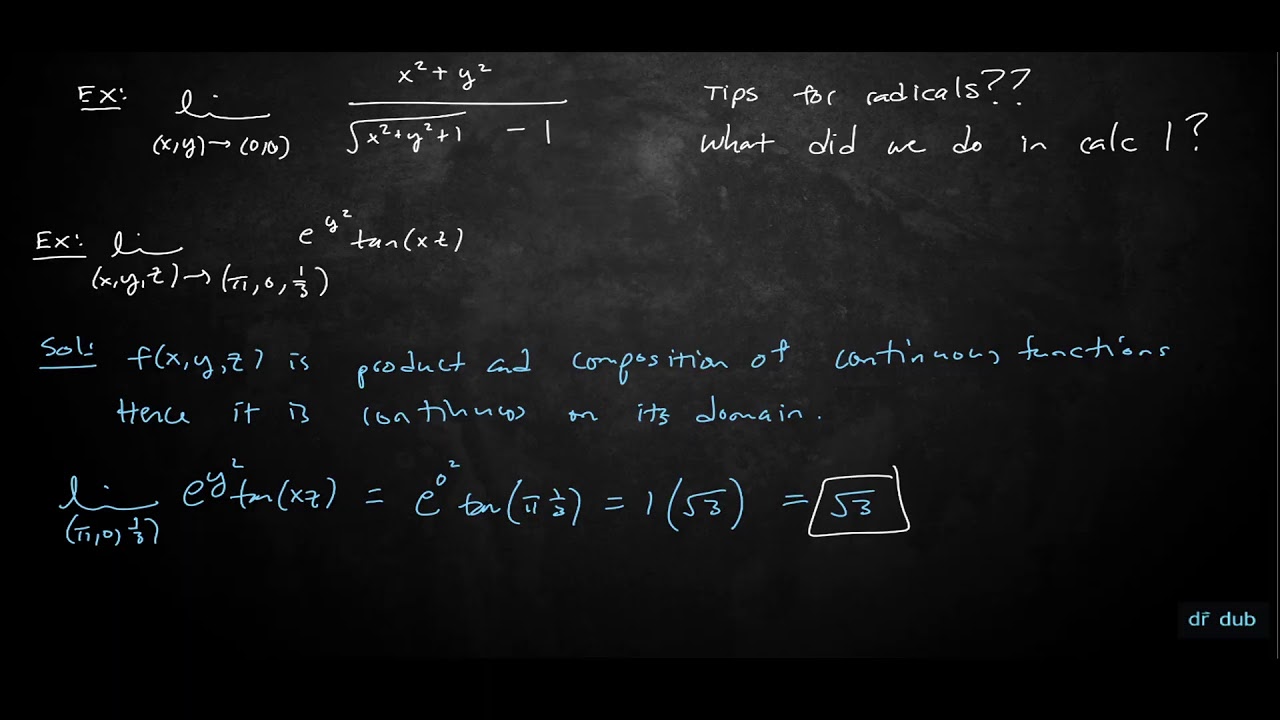 Ex: lim x² + y²
(x,y)→(0,0) √x²+y²+1 - 1
Tips for radicals??
What did we do in calc 1?
Ex: lim e^y² tan(xz)
(x,y,z)→(π,0,1/3)
Sol: f(x,y,z) is product and composition of continuous functions
Hence it is continuos on its domain.
lim e^y² tan(xz) = e^0² tan(π 1/3) = 1(√3) = √3
(π,0,1/3)
dr dub